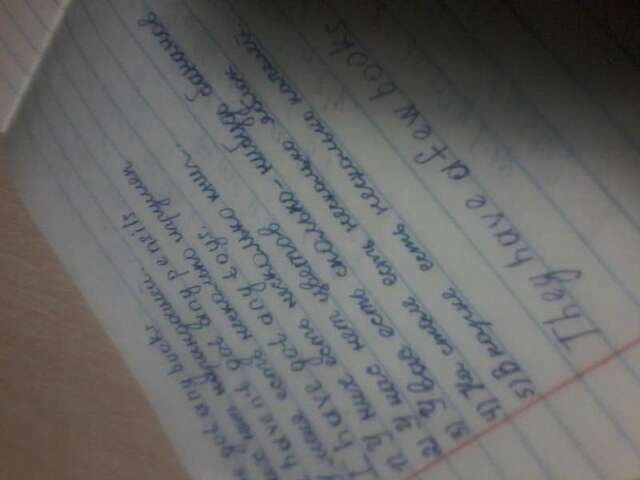 got any books
нет карандашей.
haven't got any pensils
У меня есть несколько игрушек
I have got any toys.
1) У них есть несколько книг.
2) У нас нет цветов
3) У вас есть сколько-нибудь бананов
4) На столе есть несколько яблок
5) В парке есть несколько качелей.
They have a few books